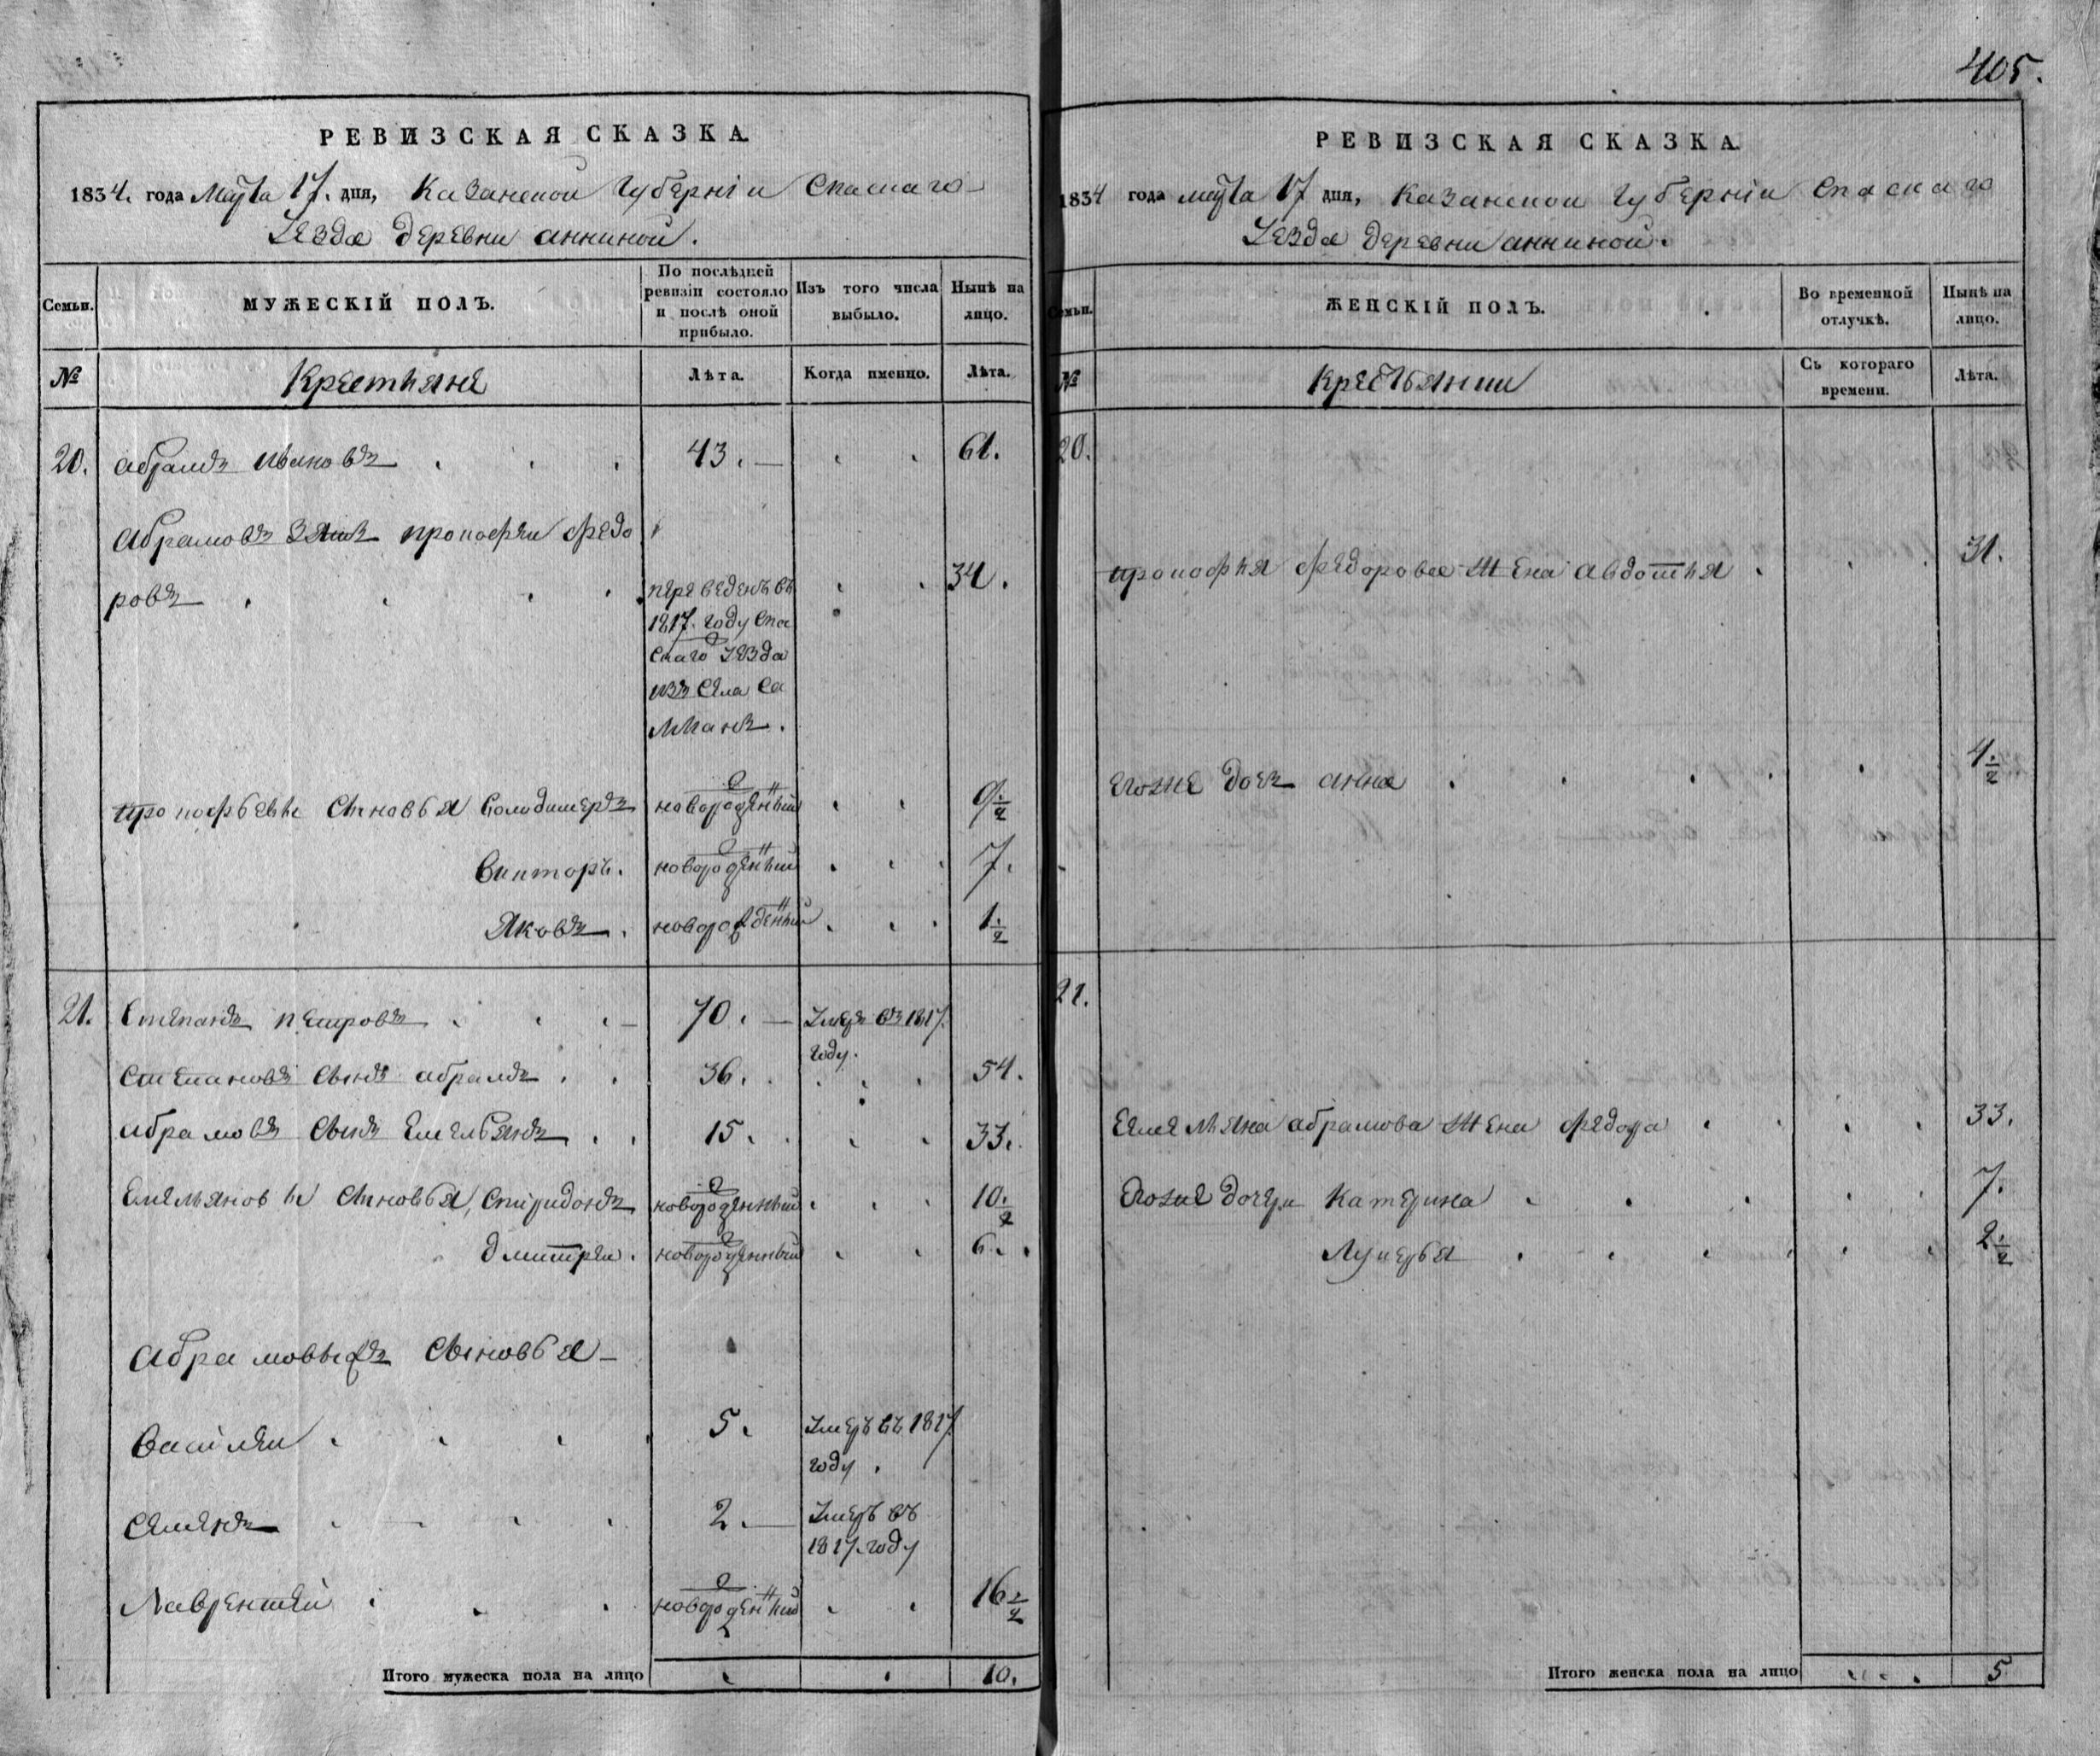 405.
РЕВИЗСКАЯ СКАЗКА.
1834. года Марта 17. дня, Казанской Губерніи Спаскаго
Уезда деревни анниной.
Семьи.
МУЖЕСКІЙ ПОЛЪ.
По послѣдней ревизіи состояло и послѣ оной прибыло.
Изъ того числа выбыло.
Нынѣ на лицо.
№
Крестьяне
Лѣта.
Когда именно.
Лѣта.
20. абрамъ ивановъ 43. 61.
абрамовъ зять прокофеи федо
ровъ 34.
переведенъ въ
1817. году Спа
скаго уезда
изъ села Са
лманъ.
прокофьевы сыновья володимеръ новорожденный 9 1/2
викторъ. новорожденный 7.
яковъ. новорожденный 1 1/2
21. степанъ петровъ 70. умеръ въ 1817.
году.
степановъ сынъ абрамъ 36. 54.
абрамовъ сынъ емельянъ 15. 33.
емельяновы сыновья, спиридонъ новорожденный 10 1/2
дмитреи. новорожденный 6.
абрамовыхъ сыновья
василеи 5. умеръ въ 1817.
году.
семенъ 2. умеръ въ
1817. году
лаврентей новорожденный 16 1/2
Итого мужеска пола на лицо 10.
РЕВИЗСКАЯ СКАЗКА.
1834 года марта 17 дня, казанской губерніи спаскаго
уезда деревни анниной.
Семьи.
ЖЕНСКІЙ ПОЛЪ.
Во временной отлучкѣ.
Нынѣ на лицо.
№
крестьянки
Съ котораго времени.
Лѣта.
20.
прокофья федорова жена авдотья 31.
егоже дочь анна 4 1/2
21.
емельяна абрамова жена федора 33.
егоже дочери катерина 7.
лукерья 2 1/2
Итого женска пола на лицо 5